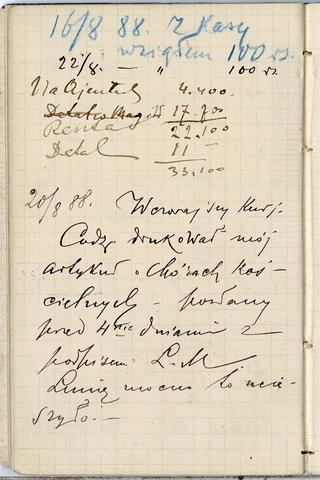 16/8 88. Z Kasy
wziąłem 100 rs.
22/8. — " 100 rs.
Na Ajentach 4.400.
17.700
Reszta 22.100
Detal 11 —
33,100
20/8 88. Wczorajszy Kurj.
Codz. drukował mój
artykuł o chórach koś-
cielnych — posłany
przed 4ma dniami z
podpisem L. M.
Lunię mocno to ucie-
szyło. —